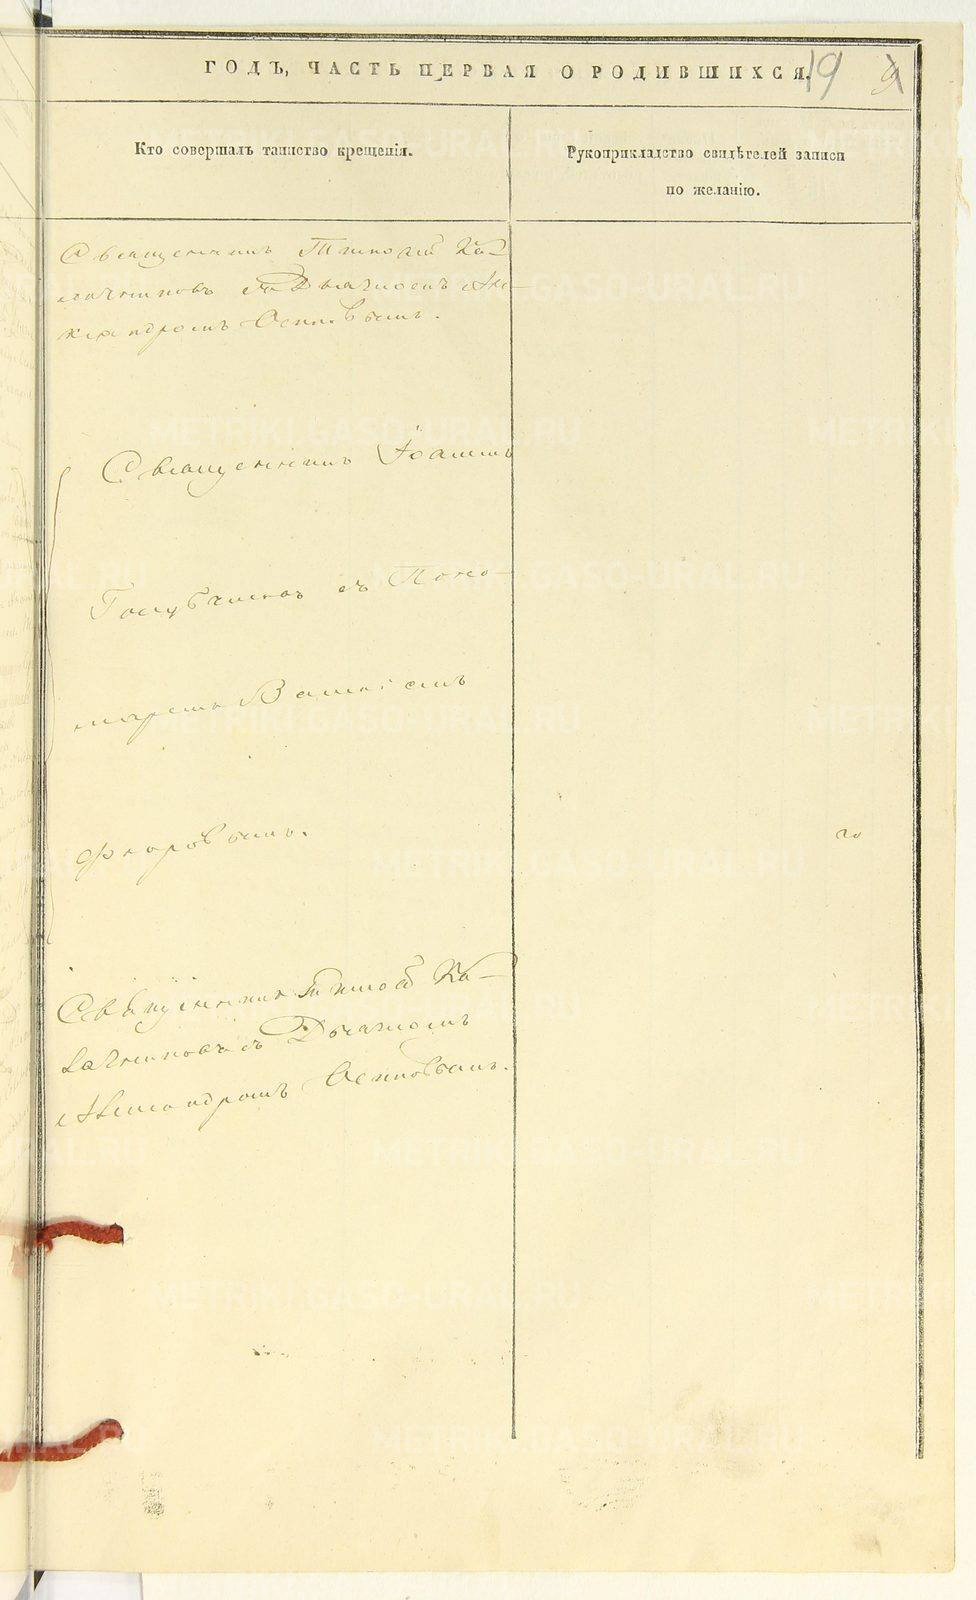 ГОДЪ, ЧАСТЬ ПЕРВАЯ О РОДИВШИХСЯ.
19
Кто совершалъ таинство крещенія.
Рукоприкладство свидѣтелей записи
по желанію.
Священникъ Тимофей Ка-
лачниковъ съ Дьячкомъ Але-
ксандромъ Осиповымъ.
Священникъ Іоаннъ
Голубчиковъ съ Поно-
маремъ
Священникъ Тимофей Ка-
лачниковъ съ Дьячкомъ
Александромъ Осиповымъ.
METRIKI.GASO-URAL.RU